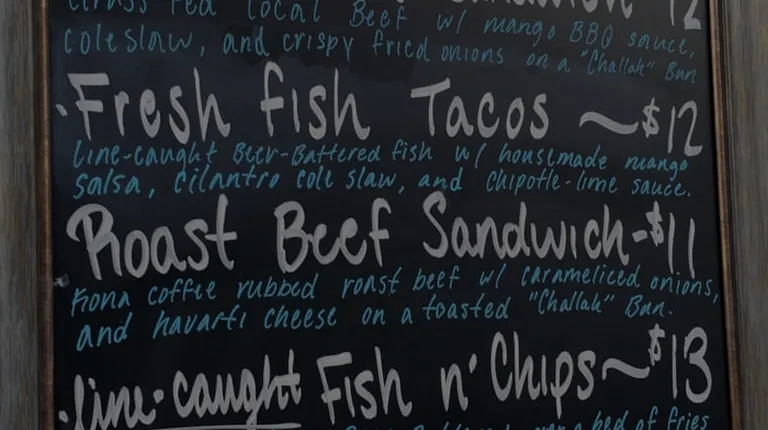 Grass Fed Local Beef w/ mango BBQ sauce,
coleslaw, and crispy fried onions on a "Challah" Bun
·Fresh fish Tacos ~$12
line-caught Beer-Battered fish w/ housemade mango
salsa, cilantro cole slaw, and chipotle-lime sauce.
Roast Beef Sandwich-$11
Kona coffee rubbed roast beef w/ carameliced onions,
and havarti cheese on a toasted "Challah" Bun.
·line-caught Fish n' Chips~$13
bed of fries